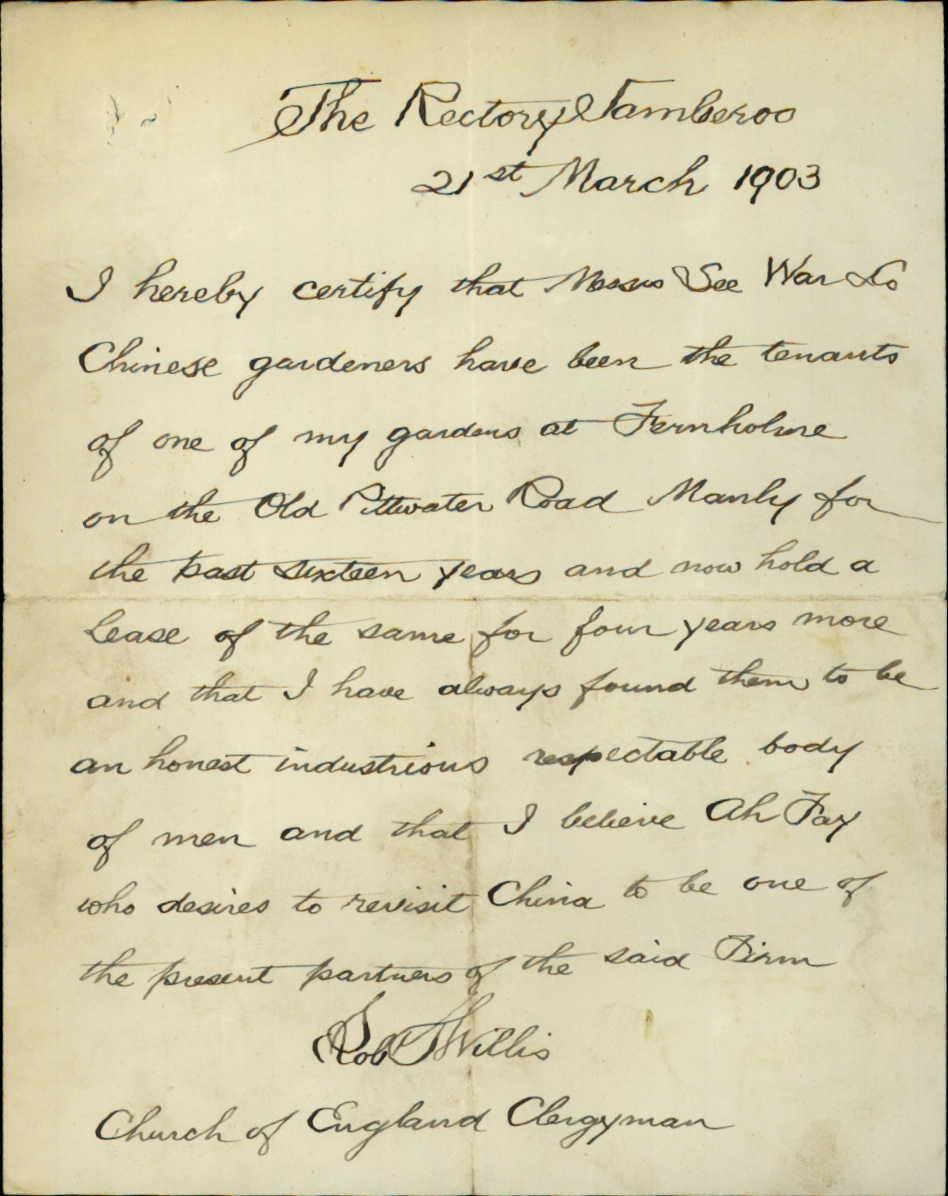 The Rectory Jamberoo
21st March 1903
I hereby certify that Messrs See War & Co
Chinese gardeners have been the tenants
of one of my gardens at Fernholme
on the Old Pittwater Road Manly for
the past sixteen years and now hold a
Lease of the same for four years more
and that I have always found them to be
an honest industrious respectable body
of men and that I believe Ah Fay
who desires to revisit China to be one of
the present partners of the said Firm
Robt S Willis
Church of England Clergyman